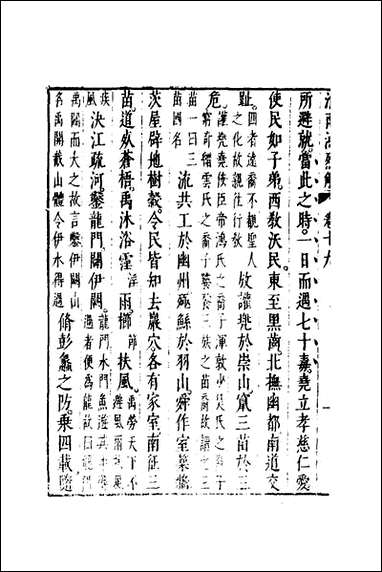 淮南鴻烈解 卷十九 一
所避就當此之時一日而遇七十毒堯立孝慈仁愛
使民如子弟西教沃民東至黑齒北撫幽都南道交
趾四者遠裔不親聖人之化故親往行教放讙兠於崇山竄三苗於三
危讙兠堯佞臣帝鴻氏之裔子渾敦少昊氏之裔子窮奇縉雲氏之裔子饕餮三族之苗裔故謂之三
苗一曰三苗國名流共工於幽州殛鯀於羽山舜作室築牆
茨屋辟地樹穀令民皆知去巖穴各有家室南征三
苗道死蒼梧禹沐浴霪雨櫛扶風禹勞天下不避風雨
疾風決江疏河鑿龍門闢伊闕龍門水門魚遊其中得過者便為龍故曰龍門
禹闢而大之故言鑿伊闕山名禹開截山體令伊水得過脩彭蠡之防乘四載隨